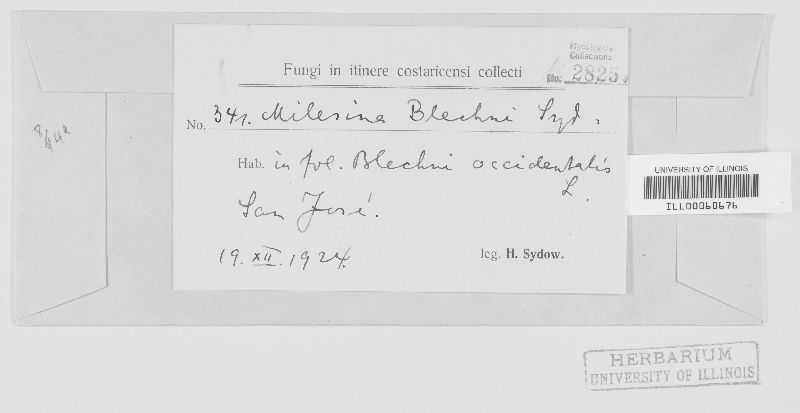 Mycological
Collections
No. 2825
Fungi in itinere costaricensi collecti
No. 341. Milesina Blechni Syd.
Hab. in fol. Blechni occidentalis
L.
San José.
19. XII. 1924.
leg. H. Sydow.
UNIVERSITY OF ILLINOIS
ILL00060676
HERBARIUM
UNIVERSITY OF ILLINOIS